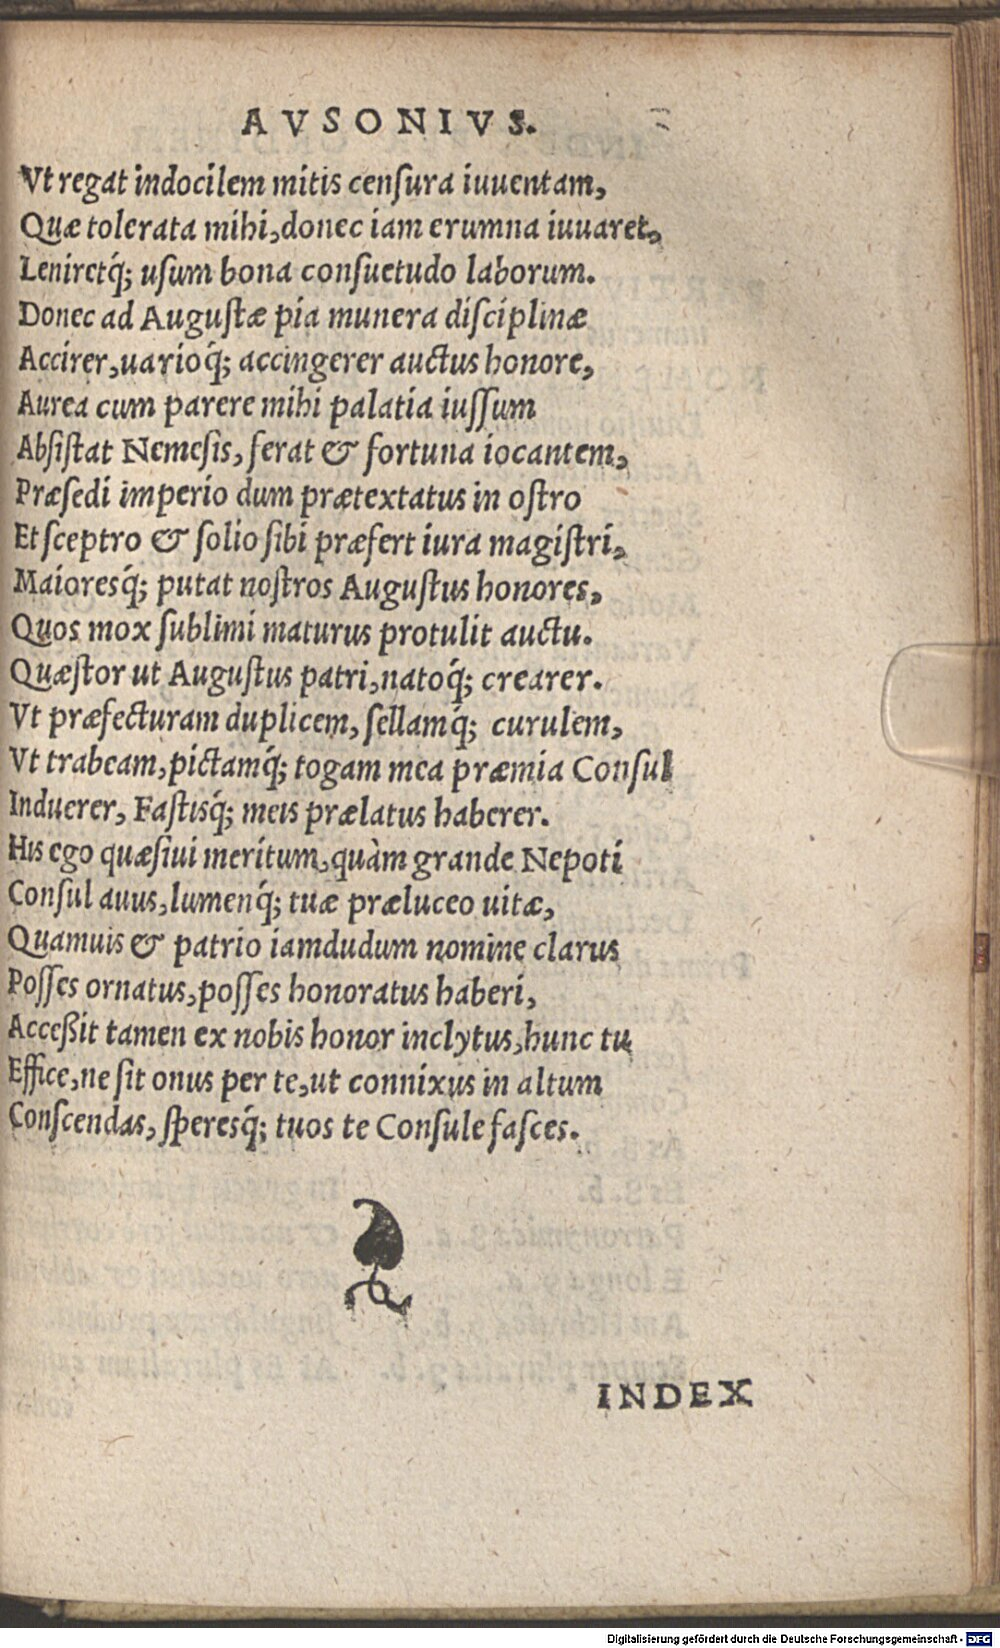 AVSONIVS.
Vt regat indocilem mitis censura iuuentam,
Quæ tolerata mihi, donec iam erumna iuuaret,
Leniretq́; usum bona consuetudo laborum.
Donec ad Augustæ pia munera disciplinæ
Accirer, uarioq́; accingerer auctus honore,
Aurea cum parere mihi palatia iussum
Absistat Nemesis, ferat & fortuna iocantem,
Præsedi imperio dum prætextatus in ostro
Et sceptro & solio sibi præfert iura magistri,
Maioresq́; putat nostros Augustus honores,
Quos mox sublimi maturus protulit auctu.
Quæstor ut Augustus patri, natoq́; crearer.
Vt præfecturam duplicem, sellamq́; curulem,
Vt trabeam, pictamq́; togam mea præmia Consul
Induerer, Fastisq́; meis prælatus haberer.
His ego quæsiui meritum, quàm grande Nepoti
Consul auus, lumenq́; tuæ præluceo uitæ,
Quamuis & patrio iamdudum nomine clarus
Posses ornatus, posses honoratus haberi,
Acceßit tamen ex nobis honor inclytus, hunc tu
Effice, ne sit onus per te, ut connixus in altum
Conscendas, speresq́; tuos te Consule fasces.
INDEX
Digitalisierung gefördert durch die Deutsche Forschungsgemeinschaft - DFG